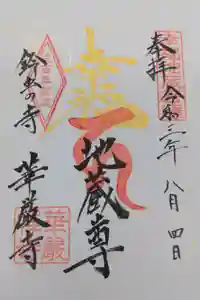 奉拝
令和三年八月四日
幸
地蔵尊
鈴虫の寺
華厳寺
華厳